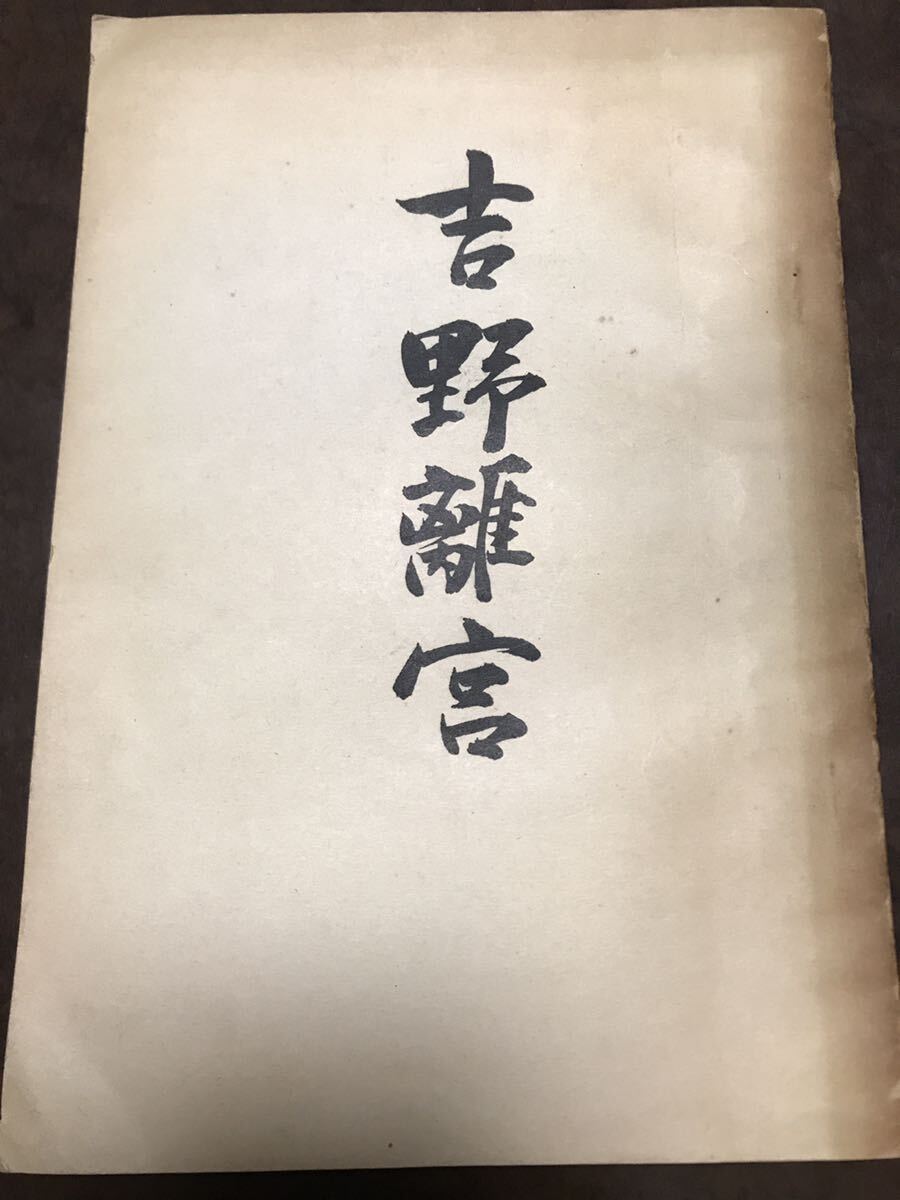 吉野離宮